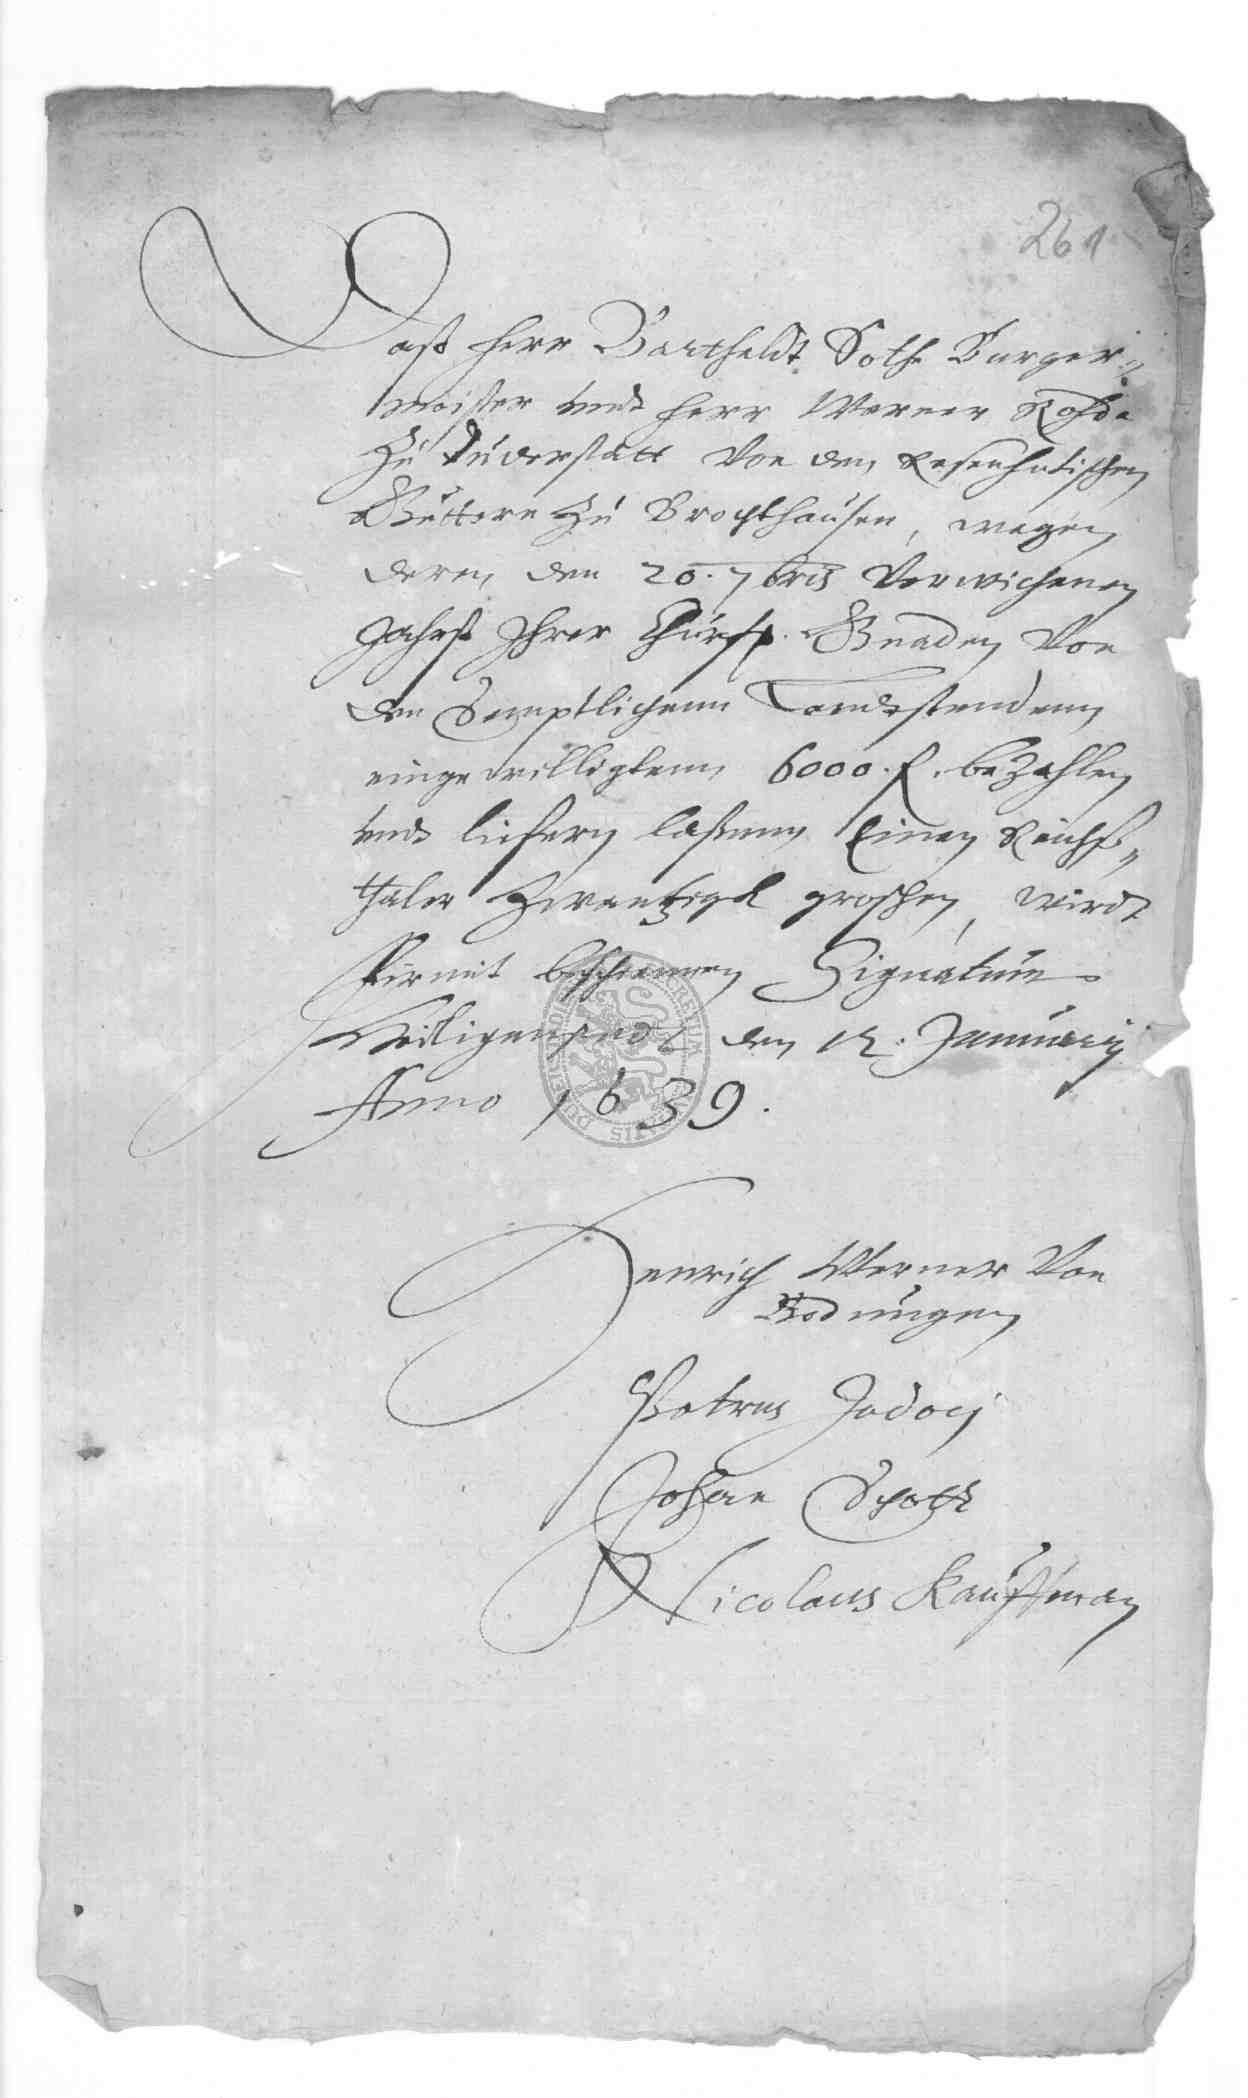 261
Daß herr Bartheldt Sothe Burger„
meister undt herr Werner Rohde
Zu Duderstatt von den Esenhutischen
Güttern Zu Brochthausen, wegen
deren, den 20. 7bris verwichenen
Jahrß Ihrer Churf. Gnaden von
den Semptlichenn Landtstendenn
eingewilligtenn 6000 f. beZahlen
undt liefern laßenn Einen Reichß„
thaler Zwantzigk groschen, wirdt
hirmit bescheinen Signatum
Heiligenstadt den 12. Januarij
Anno 1639.
Henrich Werner von
Bodungen
Petrus Jodoci
Johan Schott
Nicolaus Kauffman